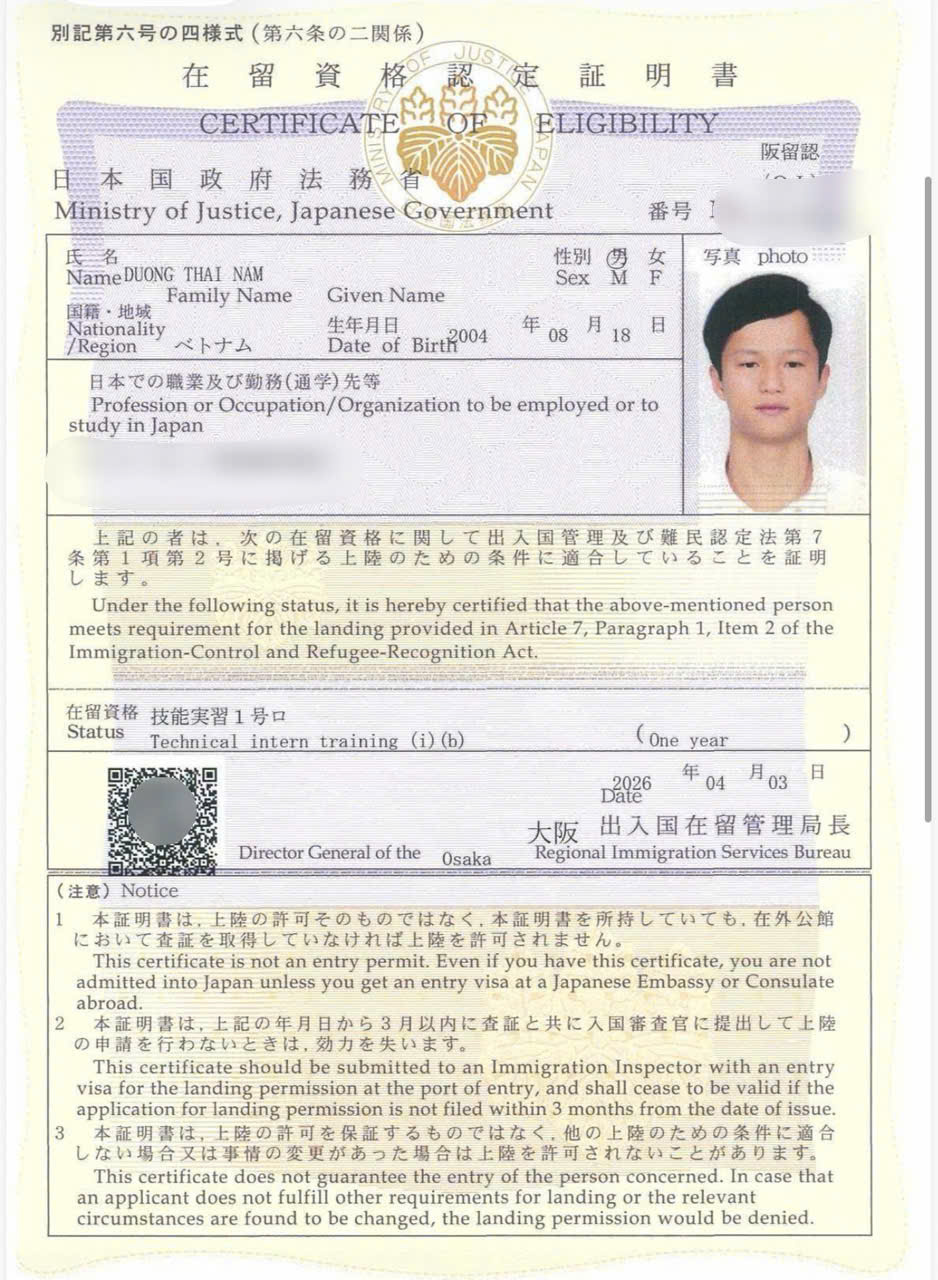 別記第六号の四様式 (第六条の二関係)
在留資格認定証明書
CERTIFICATE OF ELIGIBILITY
MINISTRY OF JUSTICE JAPAN
阪留認
日本国政府法務省
Ministry of Justice, Japanese Government
番号
氏 名
Name DUONG THAI NAM
Family Name Given Name
性別 男 女
Sex M F
写真 photo
国籍・地域
Nationality
/Region ベトナム
生年月日
Date of Birth 2004 年 08 月 18 日
日本での職業及び勤務(通学)先等
Profession or Occupation/Organization to be employed or to
study in Japan
上記の者は、次の在留資格に関して出入国管理及び難民認定法第7
条第1項第2号に掲げる上陸のための条件に適合していることを証明
します。
Under the following status, it is hereby certified that the above-mentioned person
meets requirement for the landing provided in Article 7, Paragraph 1, Item 2 of the
Immigration-Control and Refugee-Recognition Act.
在留資格 技能実習1号ロ
Status Technical intern training (i)(b) ( One year )
2026 年 04 月 03 日
Date
大阪 出入国在留管理局長
Director General of the Osaka Regional Immigration Services Bureau
(注意) Notice
1 本証明書は, 上陸の許可そのものではなく, 本証明書を所持していても, 在外公館
において査証を取得していなければ上陸を許可されません。
This certificate is not an entry permit. Even if you have this certificate, you are not
admitted into Japan unless you get an entry visa at a Japanese Embassy or Consulate
abroad.
2 本証明書は, 上記の年月日から3月以内に査証と共に入国審査官に提出して上陸
の申請を行わないときは, 効力を失います。
This certificate should be submitted to an Immigration Inspector with an entry
visa for the landing permission at the port of entry, and shall cease to be valid if the
application for landing permission is not filed within 3 months from the date of issue.
3 本証明書は, 上陸の許可を保証するものではなく, 他の上陸のための条件に適合
しない場合又は事情の変更があった場合は上陸を許可されないことがあります。
This certificate does not guarantee the entry of the person concerned. In case that
an applicant does not fulfill other requirements for landing or the relevant
circumstances are found to be changed, the landing permission would be denied.